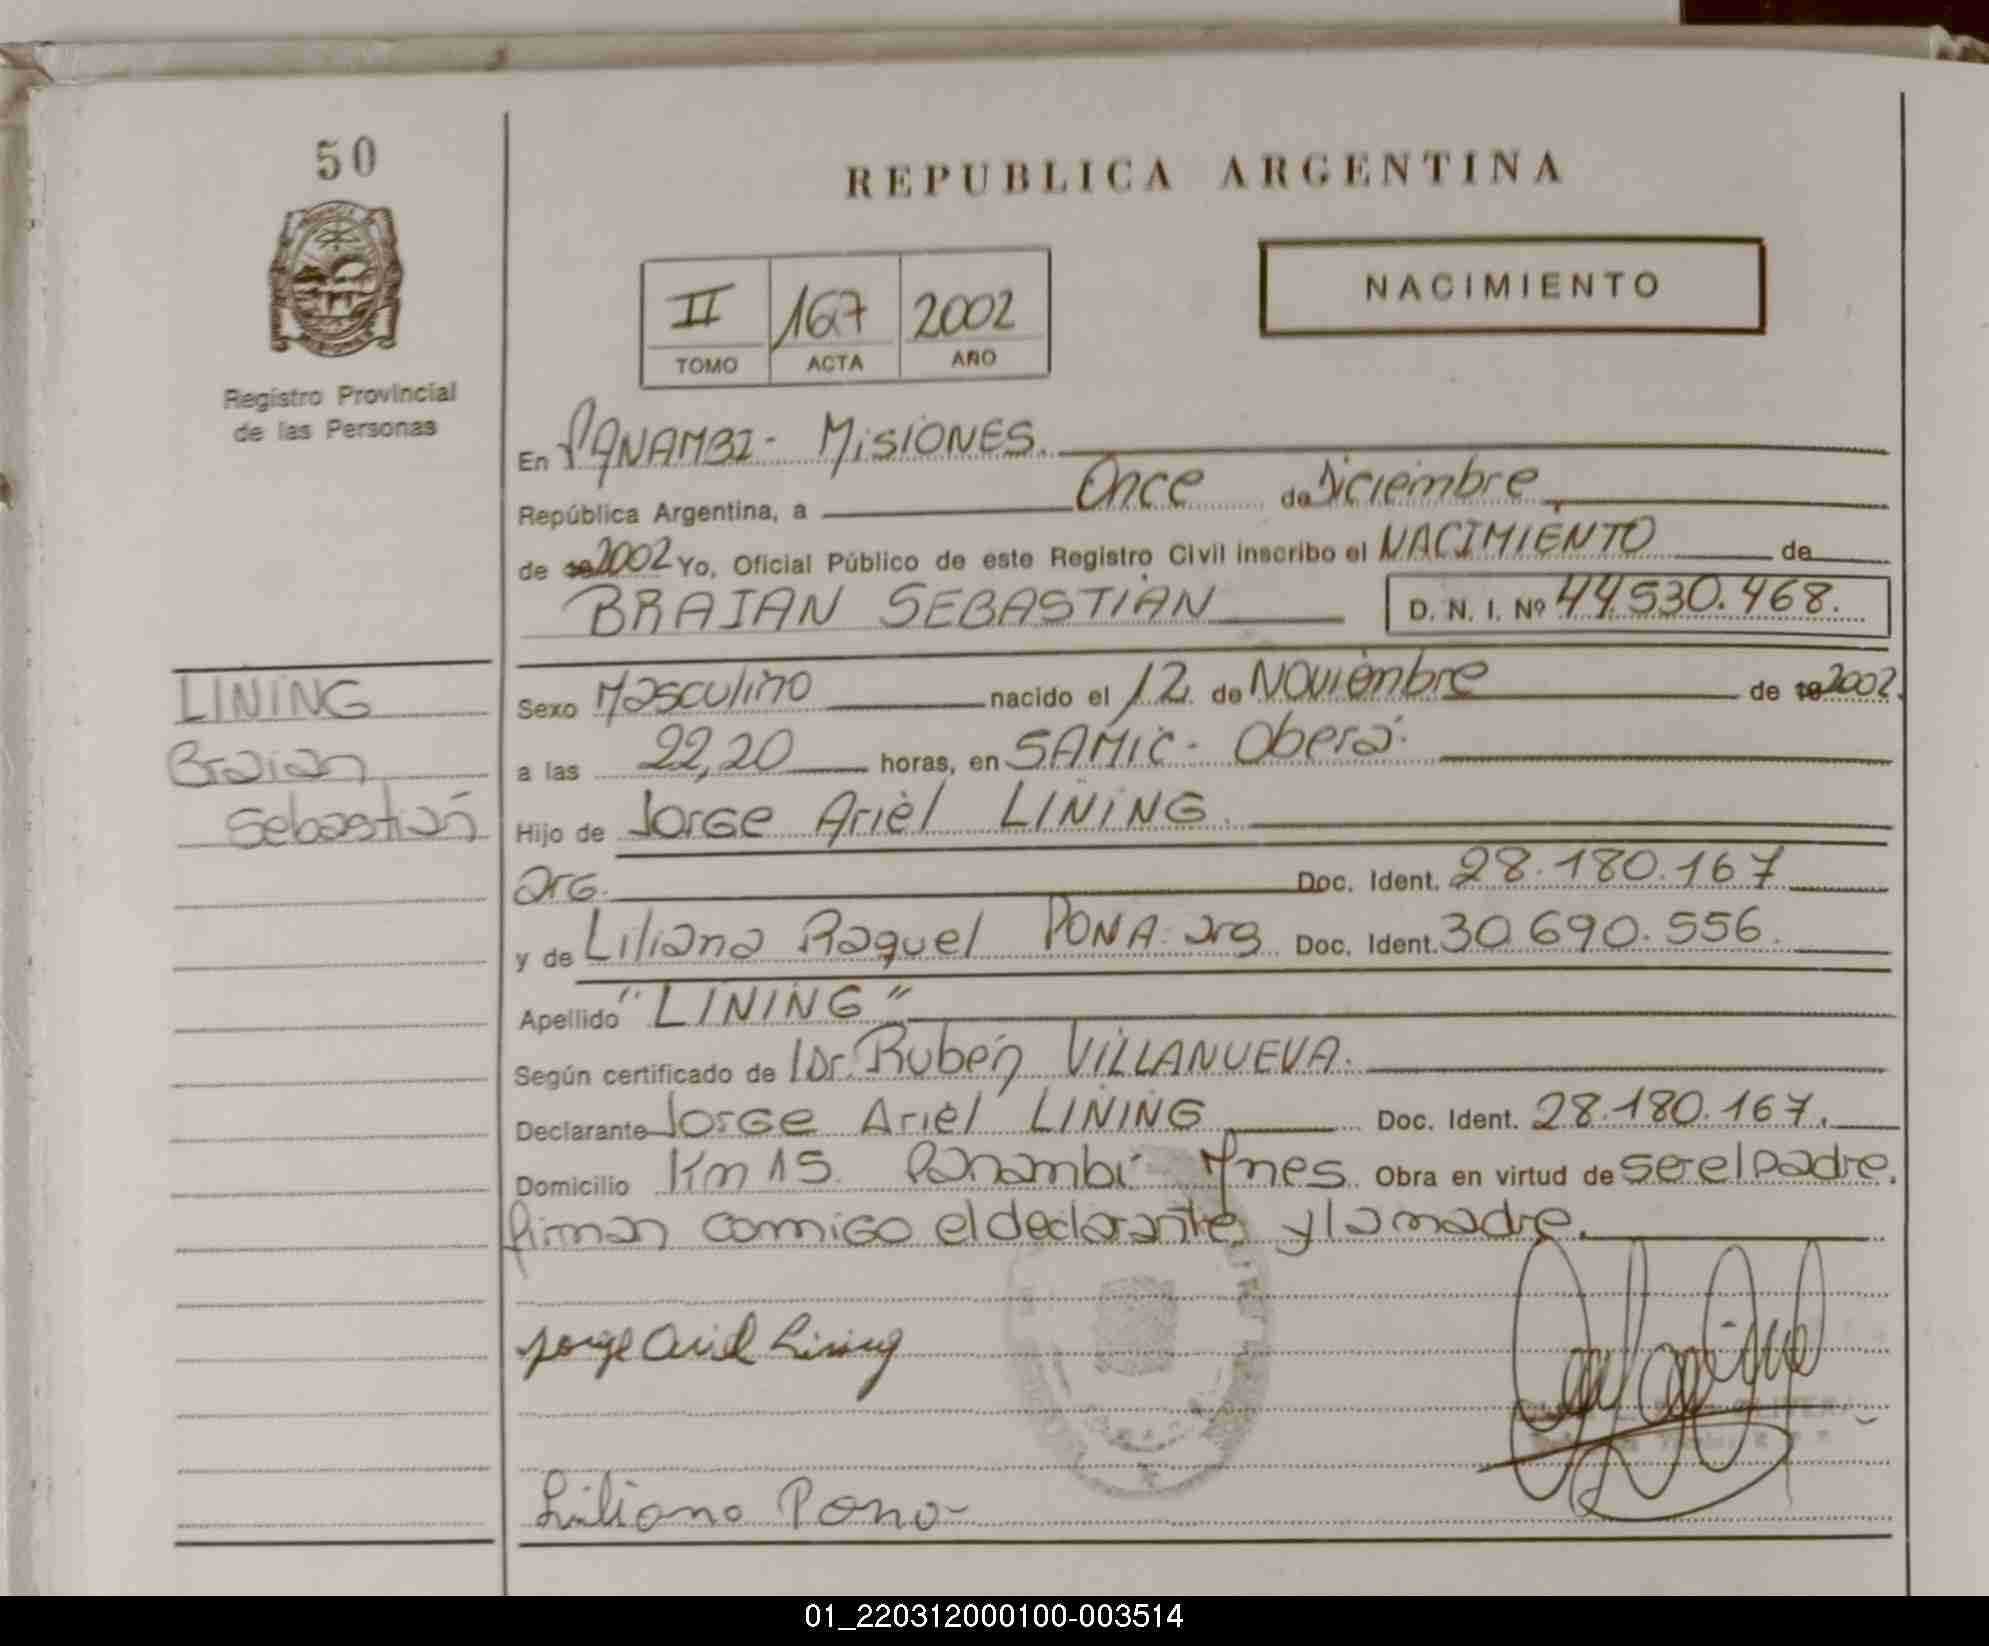 50
REPUBLICA ARGENTINA
NACIMIENTO
II 167 2002
TOMO ACTA AÑO
Registro Provincial
de las Personas
En PANAMBI - MISIONES.
República Argentina, a Once de Diciembre
de 19 2002 Yo, Oficial Público de este Registro Civil inscribo el NACIMIENTO de
BRAIAN SEBASTIÁN D. N. I. Nº 44.530.468.
LINING
Braian
Sebastián
Sexo Masculino nacido el 12 de Noviembre de 19 2002.
a las 22,20 horas, en SAMIC - Oberá.
Hijo de Jorge Ariel LINING.
arg. Doc. Ident. 28.180.167
y de Liliana Raquel PONA. arg Doc. Ident. 30.690.556.
Apellido "LINING"
Según certificado de Dr. Rubén VILLANUEVA.
Declarante Jorge Ariel LINING Doc. Ident. 28.180.167.
Domicilio Km 15. Panambí Mnes. Obra en virtud de ser el padre.
firman comigo el declarante y la madre.
Jorge Ariel Lining
Liliana Pona
01_220312000100-003514